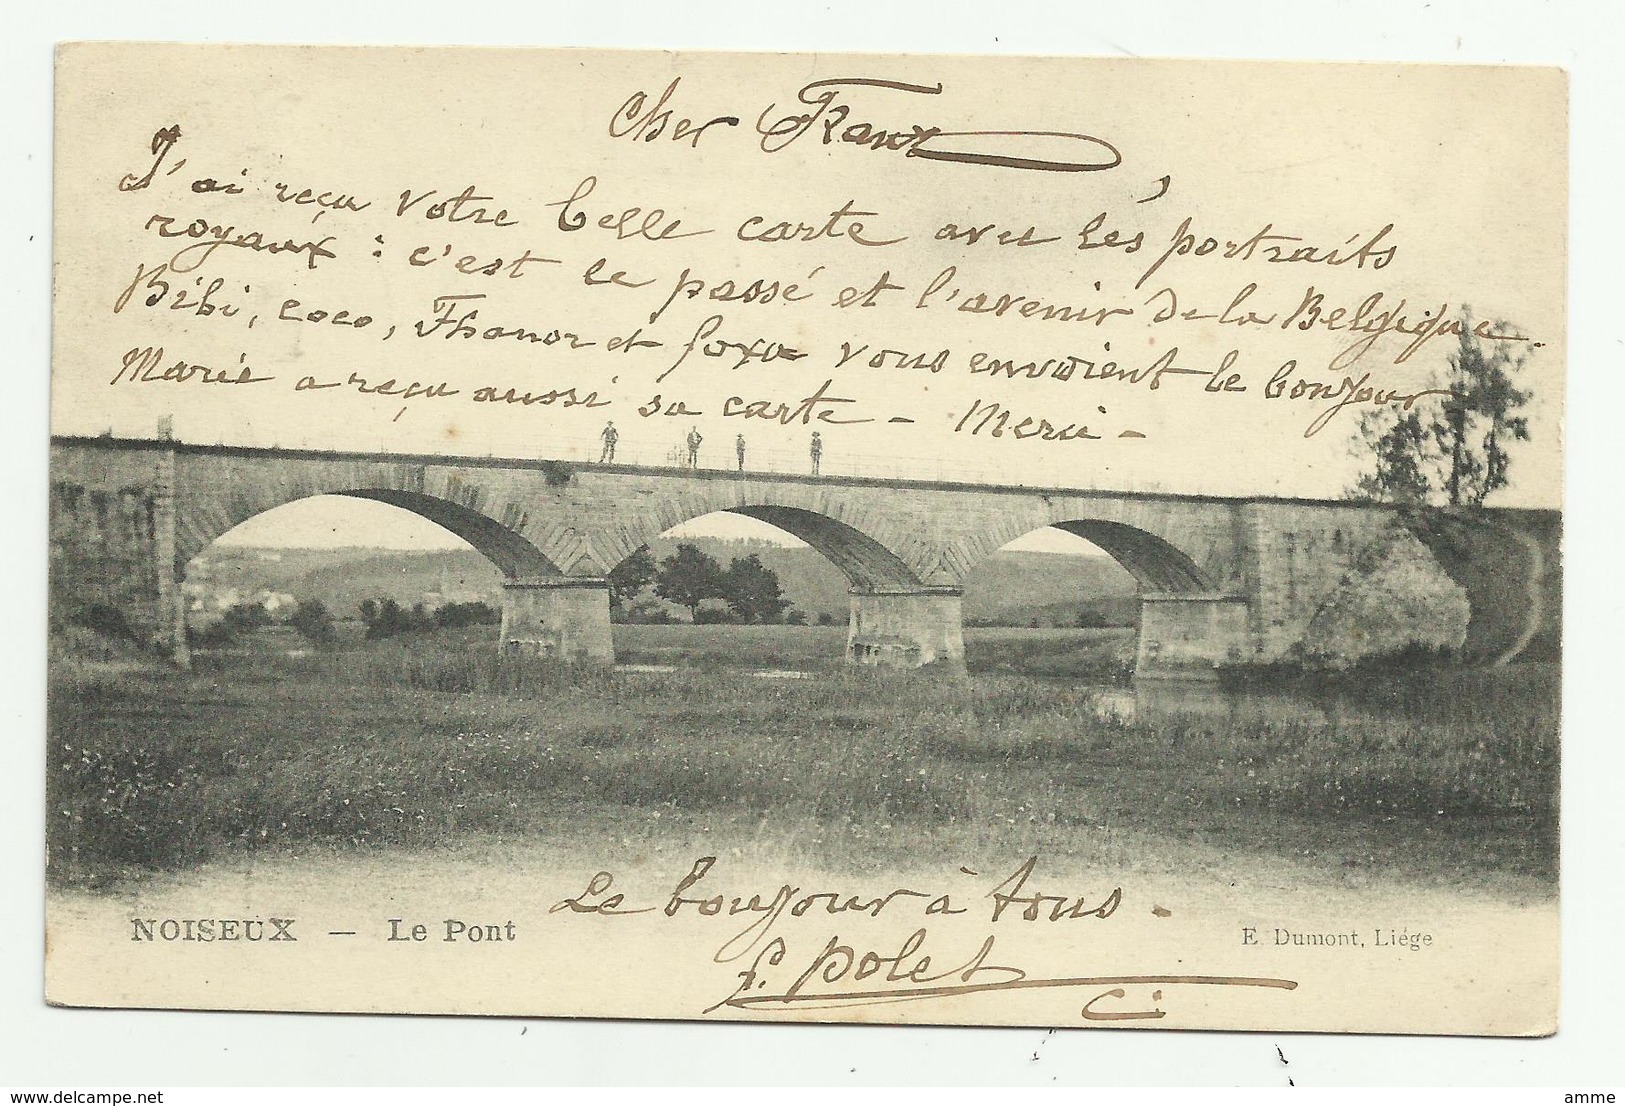 Cher Franz,
J'ai reçu votre belle carte avec les portraits
royaux : c'est le passé et l'avenir de la Belgique.
Bibi, Coco, et vous envoient le bonjour
Marie a reçu aussi sa carte - Merci -
Le bonjour à tous -
f. Polet
NOISEUX — Le Pont
E. Dumont, Liége
delcampe.net
amme